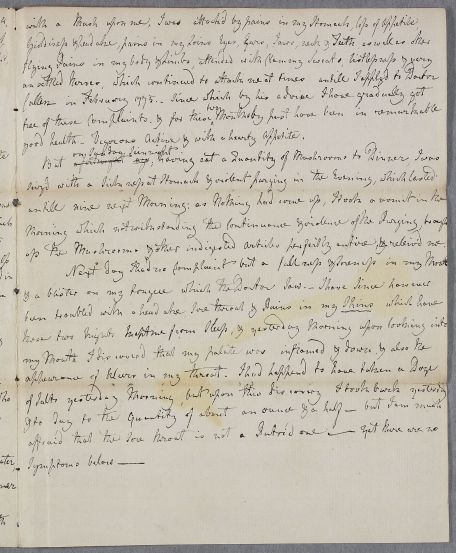 with a Blush upon me, I was attacked by pains in my Stomach, loss of Appetite
Giddiness & head ache, pains in my Loins Eyes, Ears, Jaws, neck & Teeth as well as other
flying Pains in my body & Limbs, attended with Clammy Sweats, Listlessness & very
unsettled Nerves, Which continued to attack me at times untill I applyd to Doctor
Cullen in February 1775. Since Which by his advice I have gradually got
free of these Complaints, & for these very Months by past have been in remarkable
good health. Vigorous Active & with a hearty Appetite.
But on Sunday Sunnight having eat a Quantity of Mushrooms to Dinner I was
seiz'd with a Sickness at Stomach & violent purging in the Evening, which lasted
untill nine next Morning; as Nothing had come up, I took a vomit in the
Morning Which notwithstanding the Continuance & violence of the Purging, brought
up the Mushrooms & other indigested articles perfectly entire, & relieved me.
Next Day I had no Complaint but a fullness & soreness in my Mouth
& a blister on my tongue which the Doctor saw. I have Since however
been troubled with a head ache Sore throat & Pains in my Shins which have
these two nights kept me from Sleep, & yesterday Morning upon looking into
my Mouth I discovered that my palate was inflamed & down, & also the
appearance of Ulcers in my throat. I had happend to have taken a Doze
of Salts yesterday Morning but upon this discovery I took bark yesterday
& to Day to the Quantity of about an ounce & a half — but I am much
affraid that the Sore throat is not a Putrid one — yet there are no
Symptoms below —